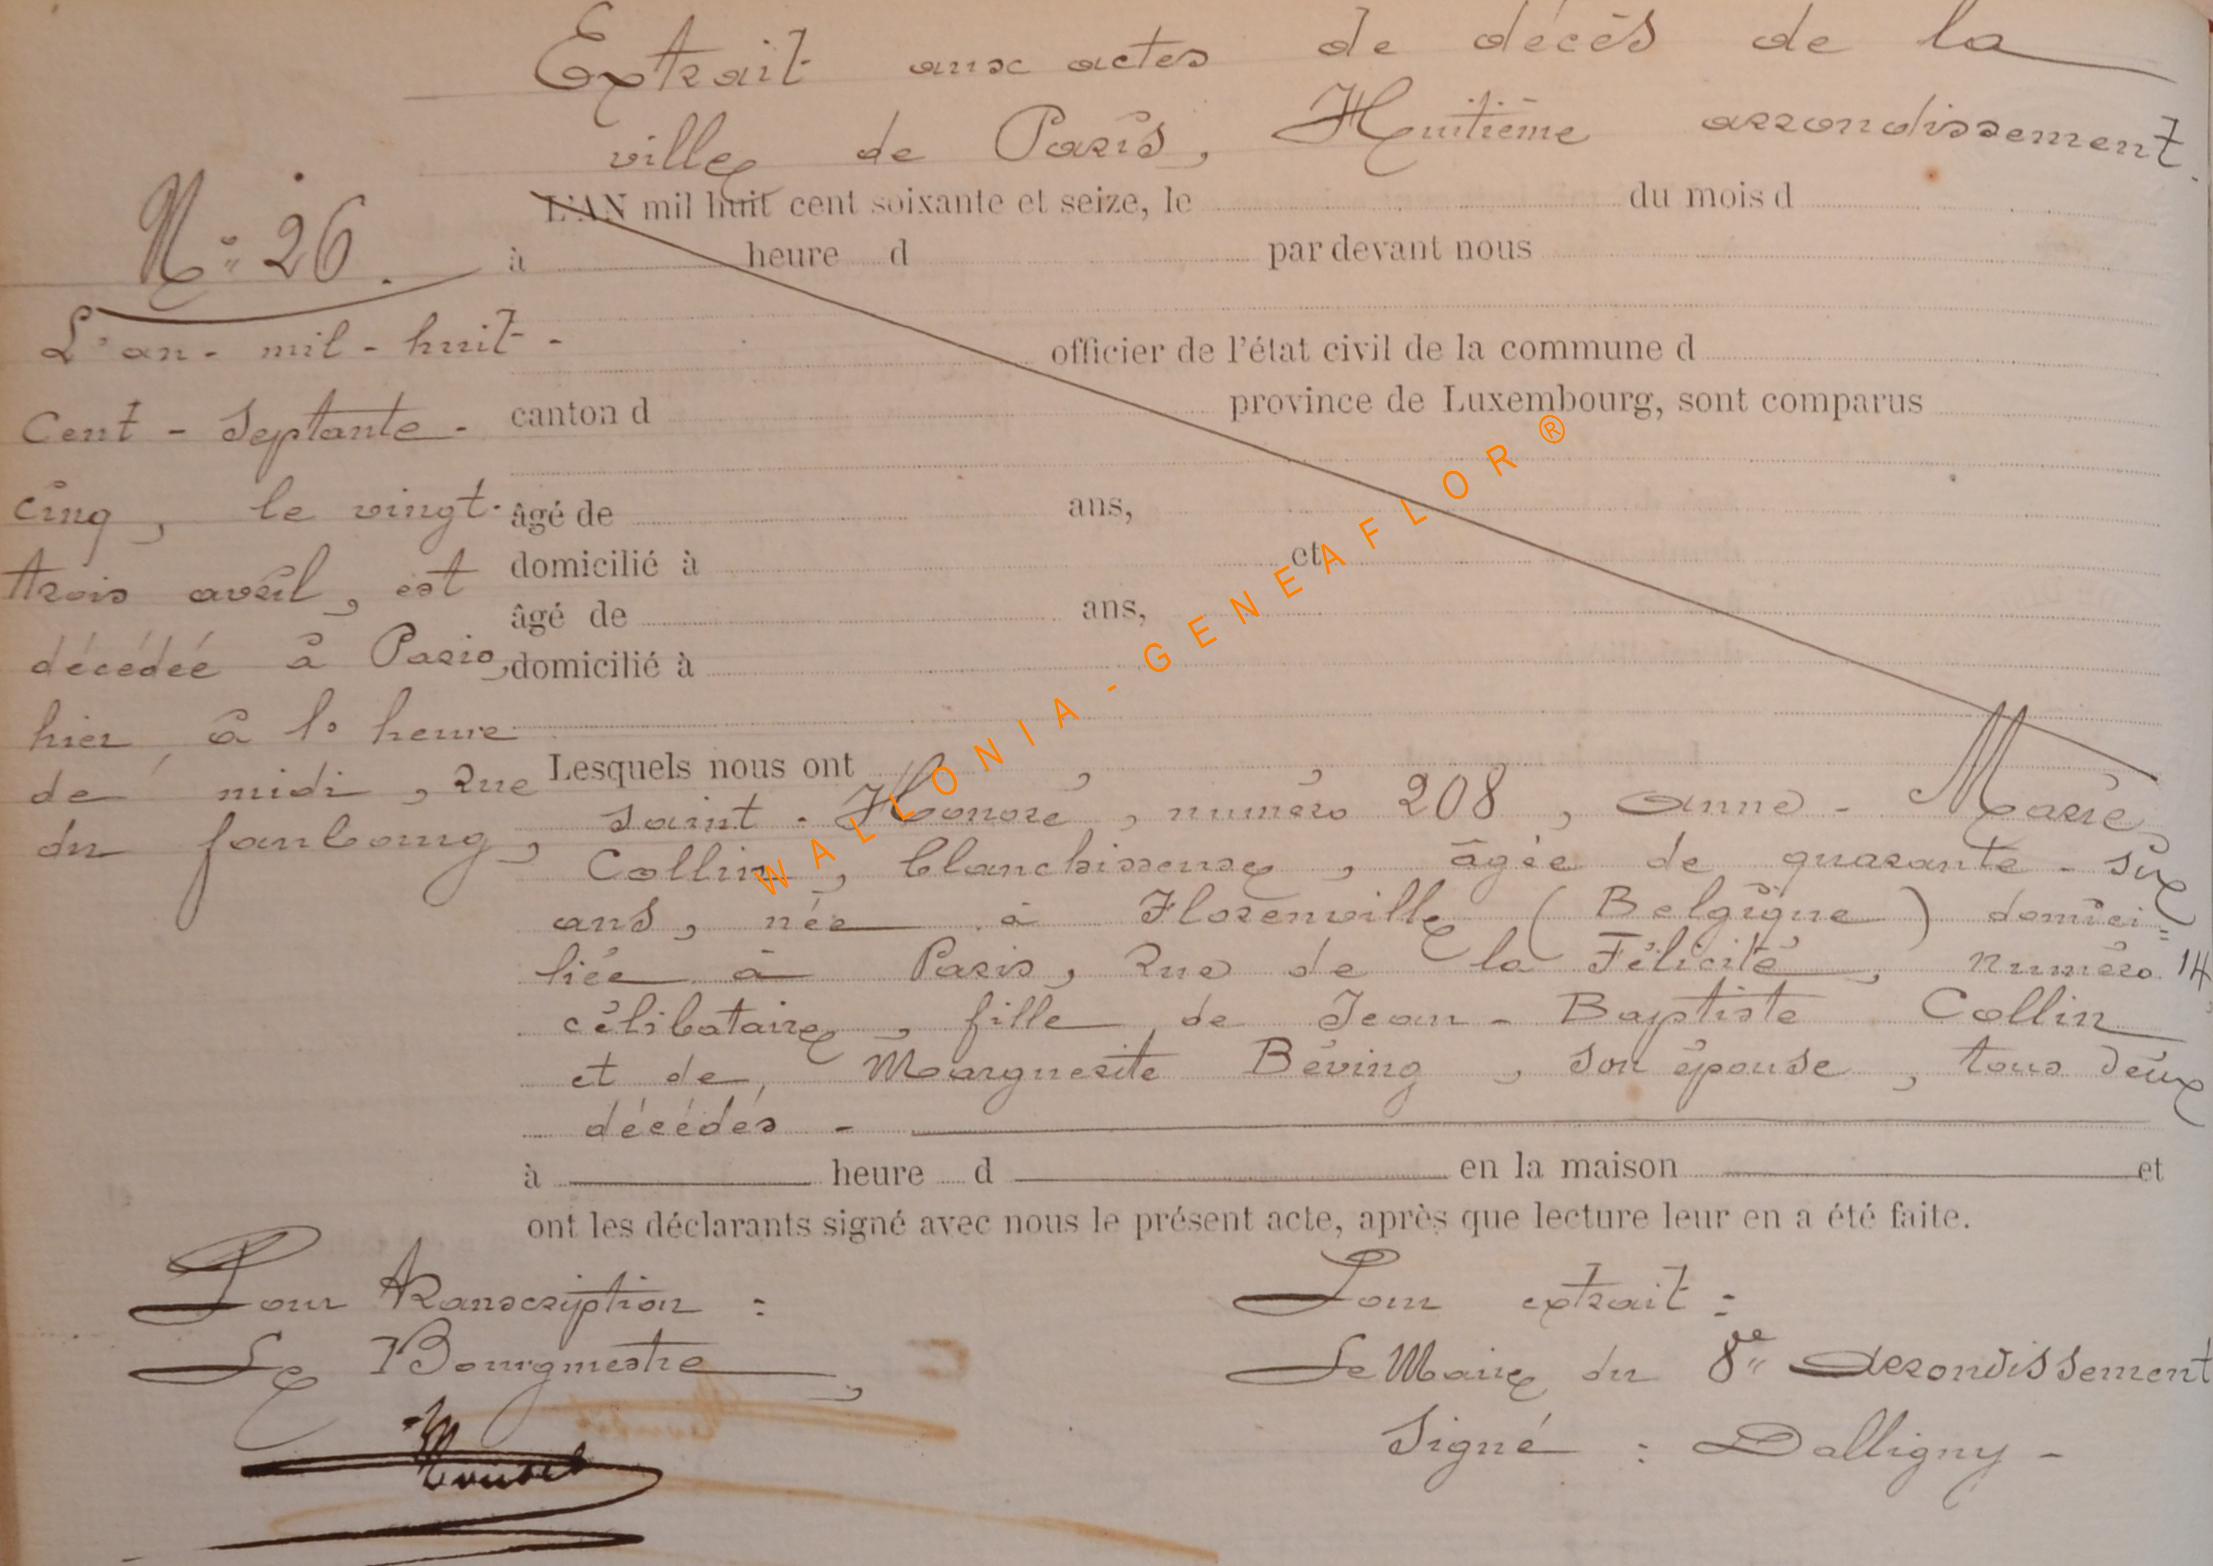 Extrait aux actes de décès de la
ville de Paris, Huitième arrondissement.
N° 26.
L'AN mil huit cent soixante et seize, le du mois d
à heure d par devant nous
officier de l'état civil de la commune d
canton d province de Luxembourg, sont comparus
âgé de ans,
domicilié à et
âgé de ans,
domicilié à
Lesquels nous ont
L'an - mil - huit -
cent - septante -
cinq, le vingt-
trois avril, est
décédée à Paris,
hier à 1° heure
de midi, rue
du faubourg,
saint - Honoré, numéro 208, Anne - Marie
Collin, blanchisseuse, âgée de quarante - six
ans, née à Florenville (Belgique) domici=
liée à Paris, rue de la Félicité, numéro 14,
célibataire, fille de Jean - Baptiste Collin
et de Marguerite Béving, son épouse, tous deux
décédés -
à heure d en la maison et
ont les déclarants signé avec nous le présent acte, après que lecture leur en a été faite.
Pour transcription :
Le Bourgmestre,
Pour extrait :
Le Maire du 8e arrondissement
Signé : Dalligny -
WALLONIA-GENEAFLOR ®